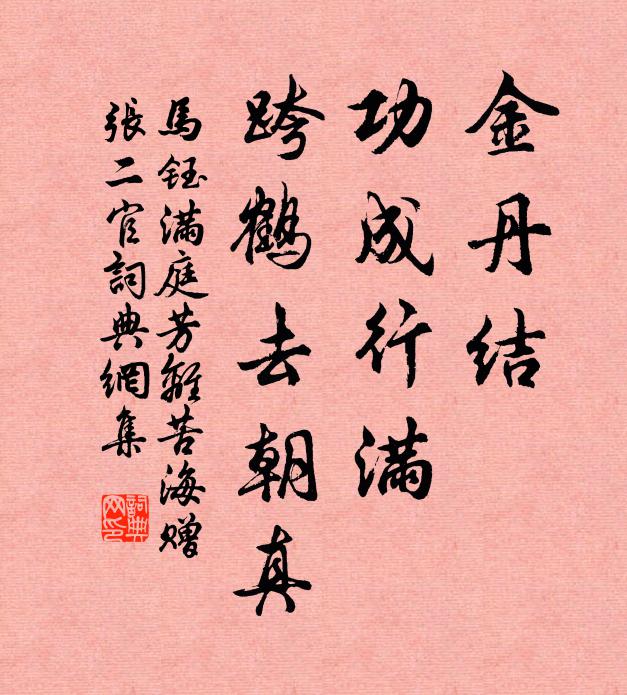 金丹结
功成行满
跨鹤去朝真
馬鈺满庭芳離苦海赠
張二官詞典網集
詞典
网印